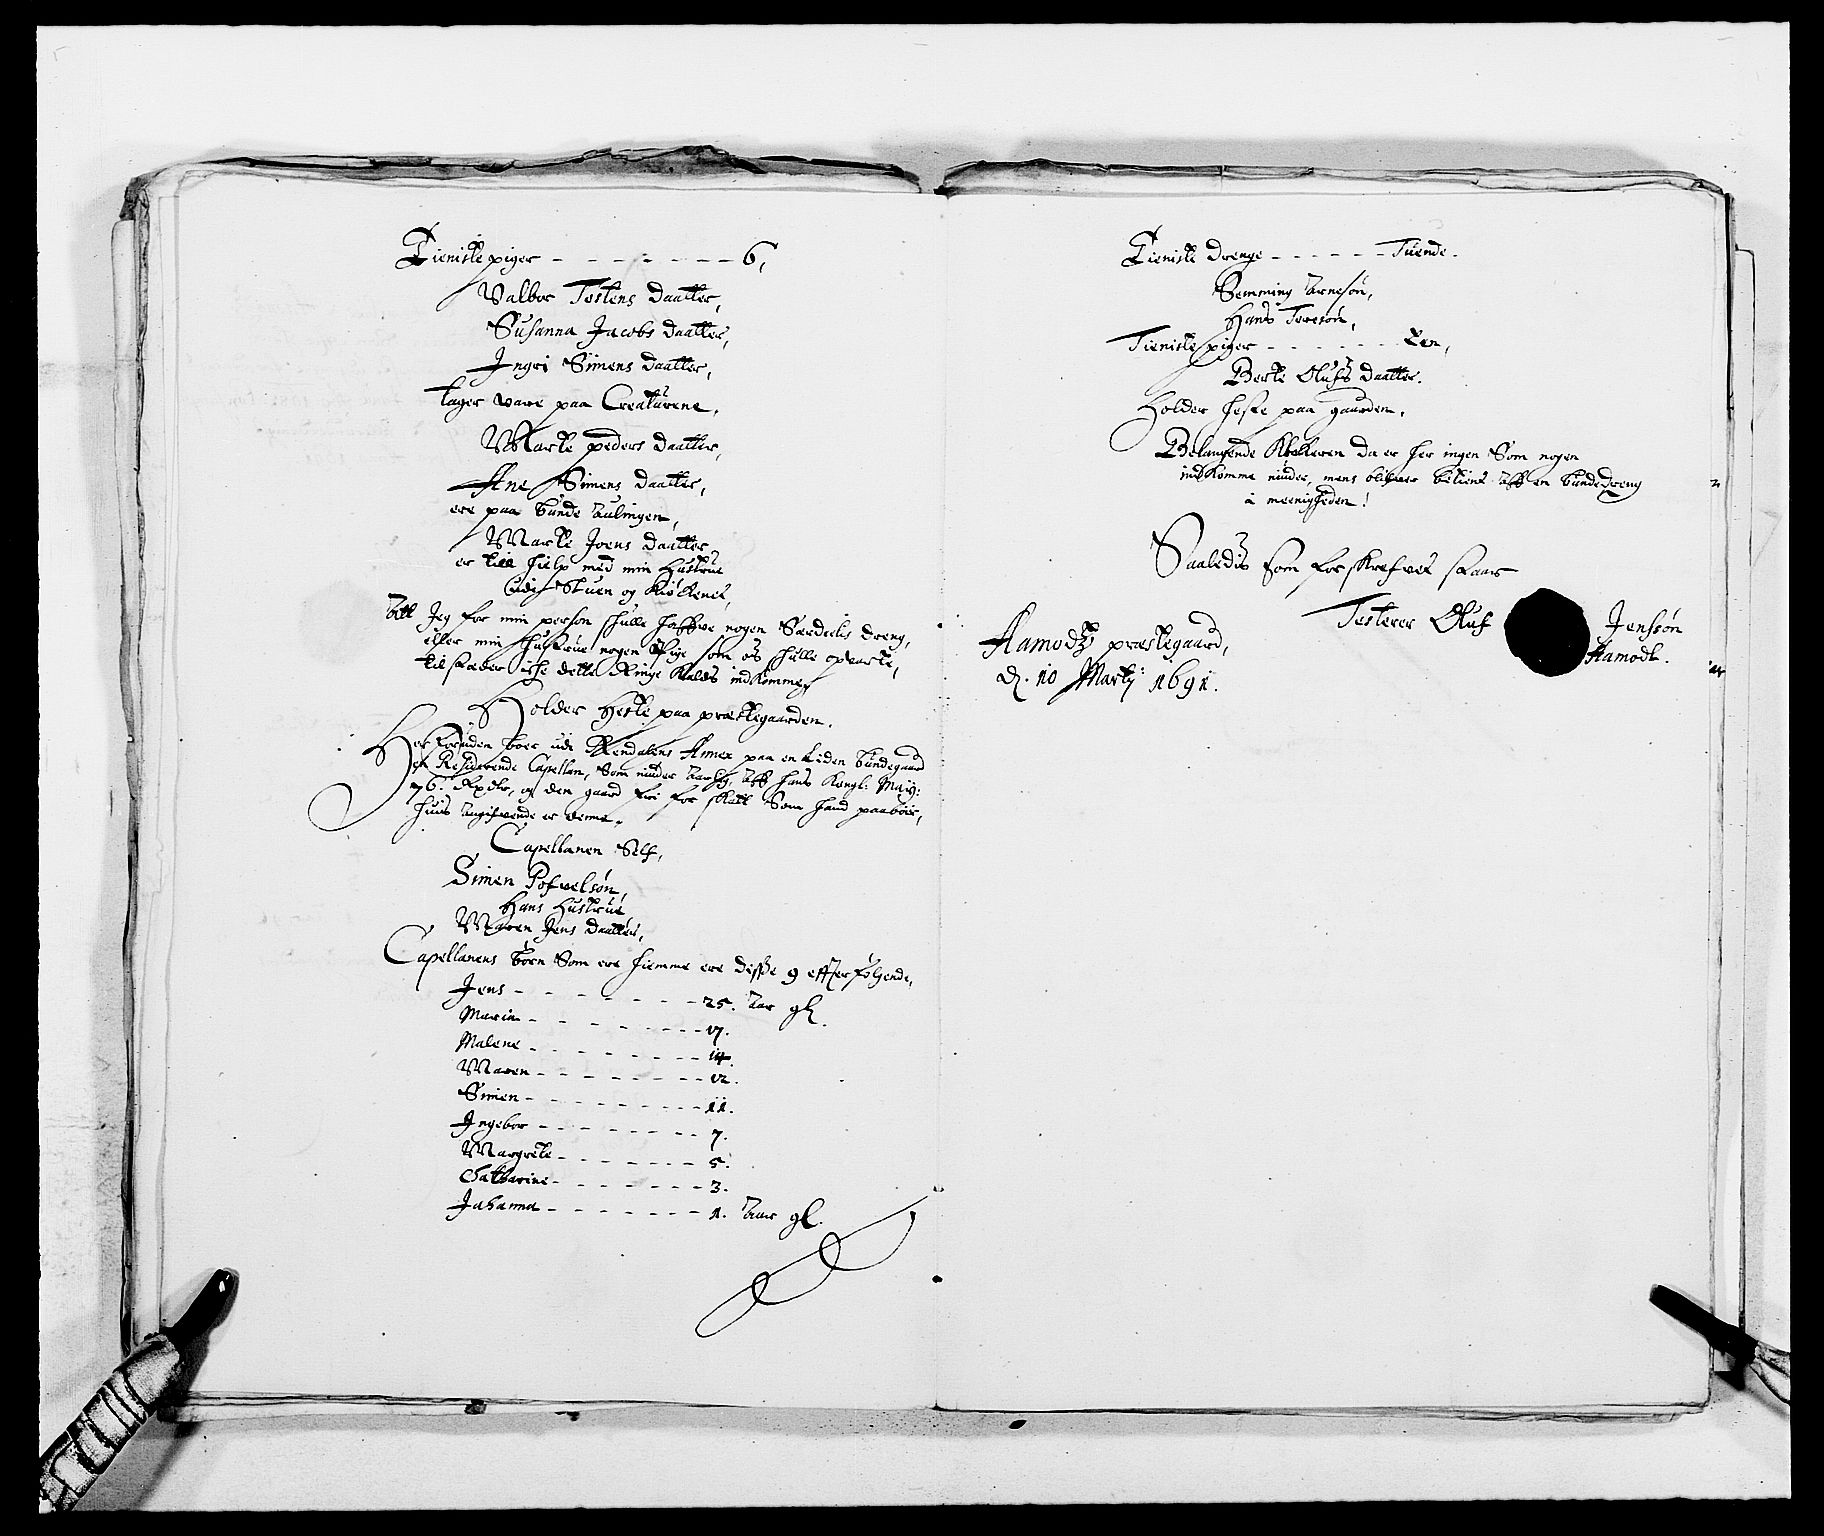 Tieniste piger - - - - - - - 6,
Valbor Tostens daatter,
Susanna Jacobs daatter,
Ingri Simens daatter,
tager vare paa Creaturene,
Marte peders daatter,
Ane Simens daatter,
ere paa bunde aulingen,
Marte Joens daatter
er till hielp med min Hustrue
udj Stuen og Kiøkenet,
Att Jeg for min person skulle haffve nogen Særdelis dreng,
eller min hustrue nogen Pige som os skulle opvarte,
tilstæder icke dette Ringe Kalds indkomme,
Holder Heste paa præstegaarden.
Her foruden boer udi Rendalens Annex paa en liden bundegaard
en Residerende Capellan, Som niuder aarlig aff hans Kongl: Mayt:
76. Rixdr, og den gaard fri for skatt Som hand paaboer,
huis angifvende er denne,
Capellanen Self,
Simen Pofvelsøn,
Hans Hustrue
Maren Jens daatter,
Capellanens børn Som ere hiemme ere disse 9 effterfølgende,
Jens - - - - - - - 25. aar gl.
Maria - - - - - - - 17.
Malene - - - - - - - 14.
Maren - - - - - - - 12.
Simen - - - - - - - 11.
Ingebor - - - - - - - 7.
Margrete - - - - - - - 5.
Catharine - - - - - - - 3.
Johanna - - - - - - - 1. aar gl.
Tieniste drenge - - - - - - Tuende.
Semming Arnesøn,
Hans Toresøn,
Tieniste piger - - - - - - - Een,
Berte Olufs daatter.
Holder heste paa gaarden,
Belangende Klokeren da er her ingen Som nogen
indkomme niuder, mens blifver betient aff en bundedreng
i meenigheden!
Saaledis som forskrefvet staar
Testerer Oluf Jenssøn
Aamodt.
Aamodtz præstegaard,
d. 10 Martij 1691.